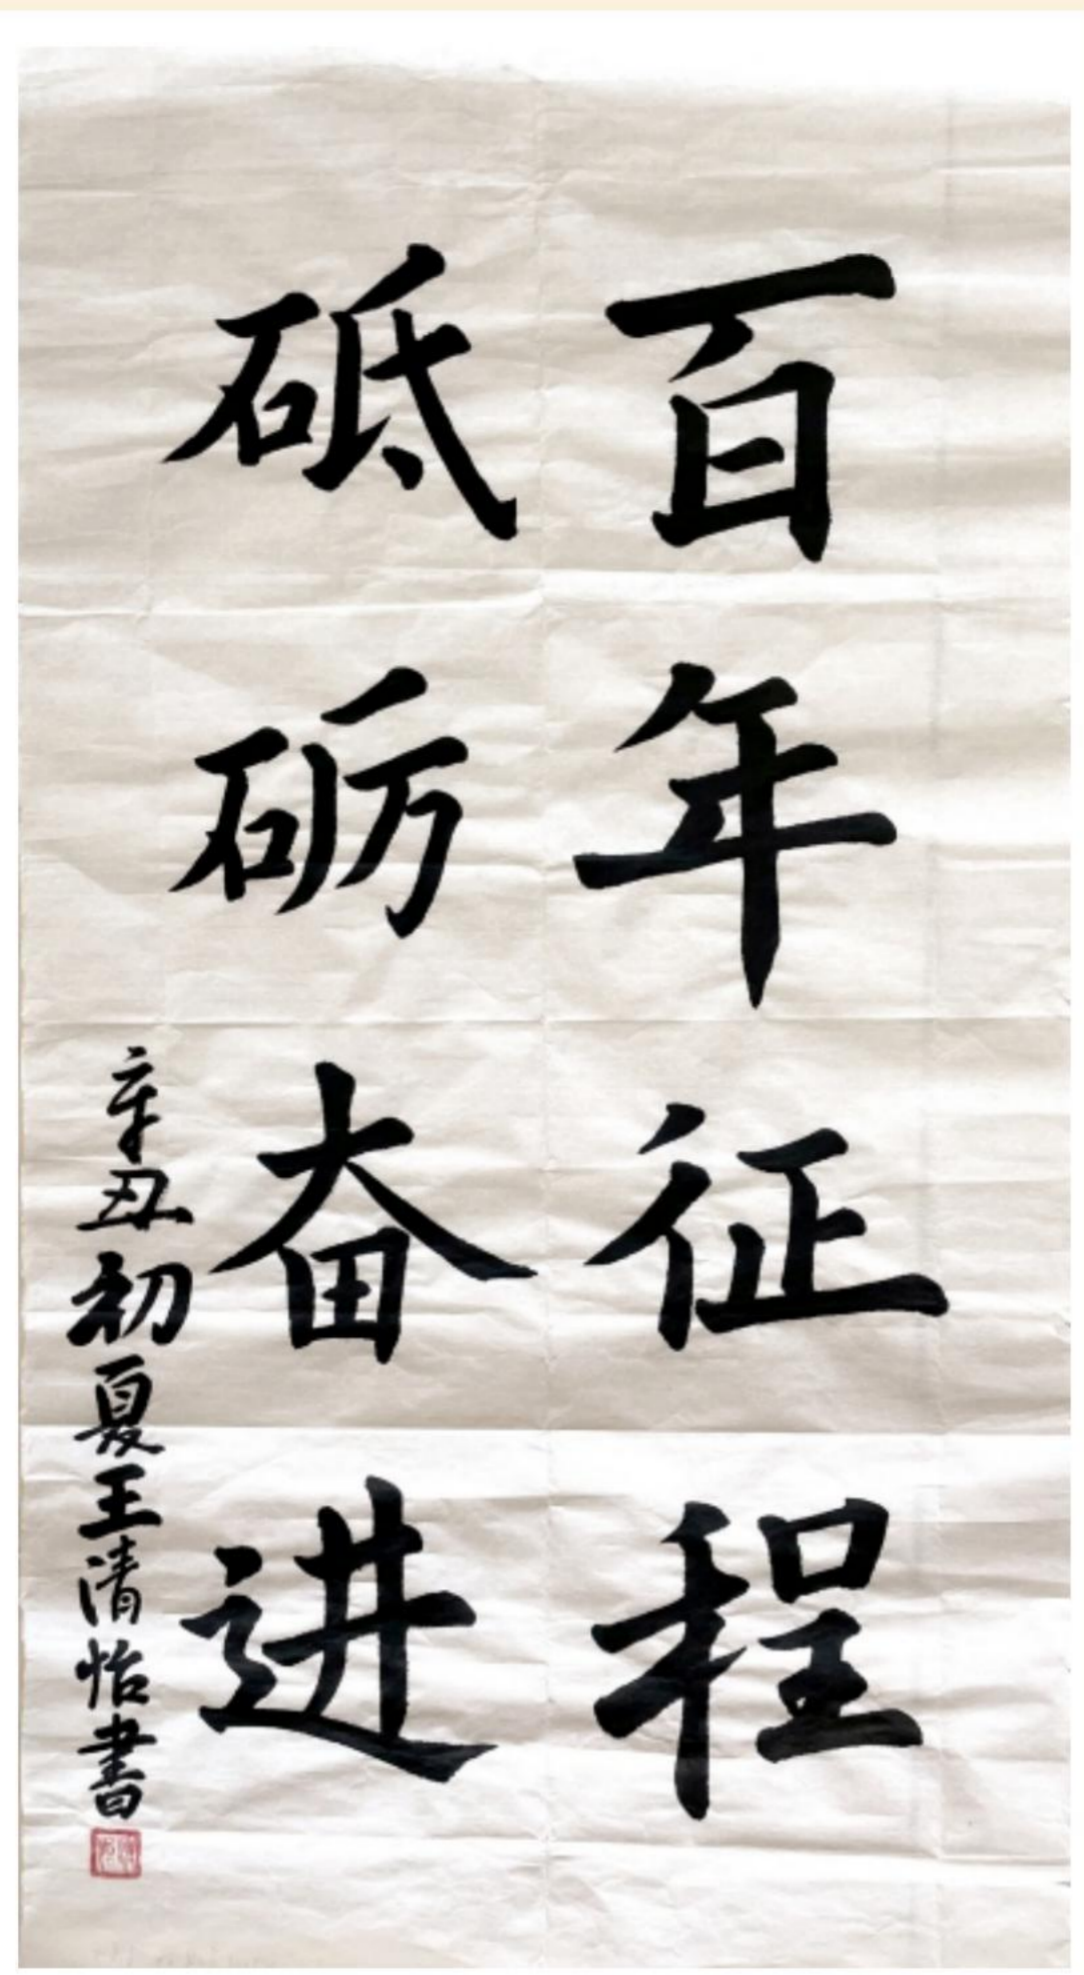 百年征程
砥砺奋进
辛丑初夏王清怡書